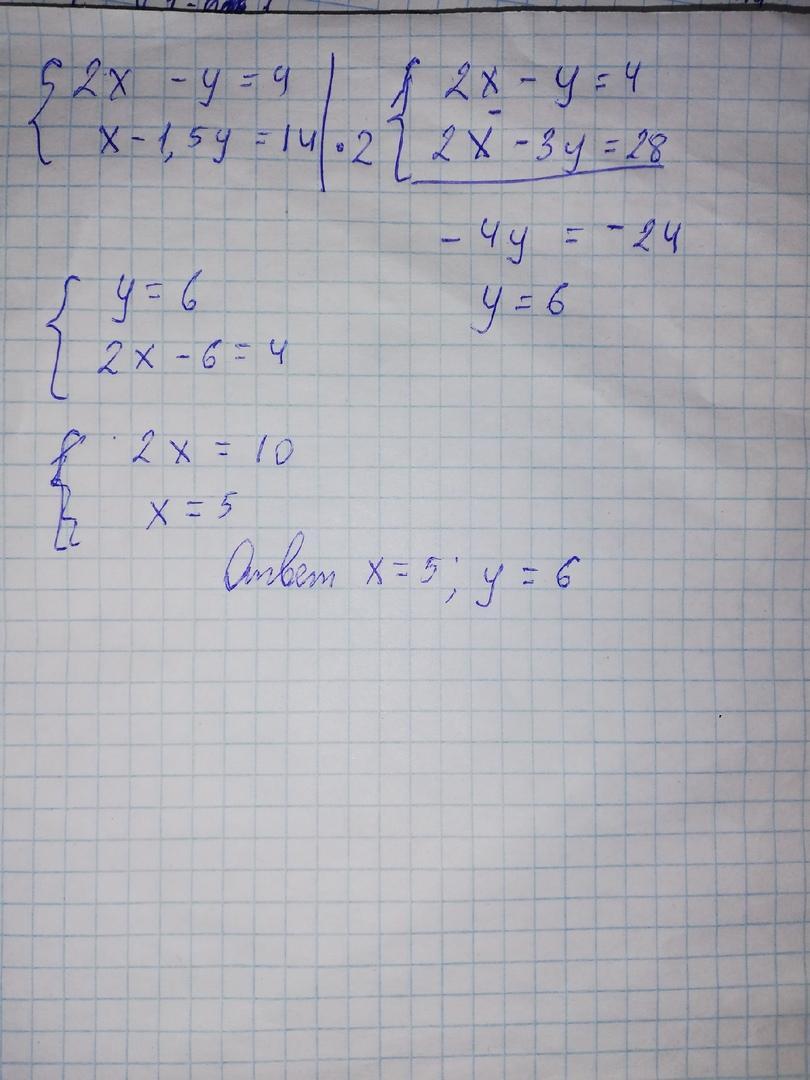 2x - y = 4 | 2x - y = 4
x - 1,5y = 14 | · 2 2x - 3y = 28
- 4y = - 24
y = 6 y = 6
2x - 6 = 4
2x = 10
x = 5
Ответ x = 5; y = 6